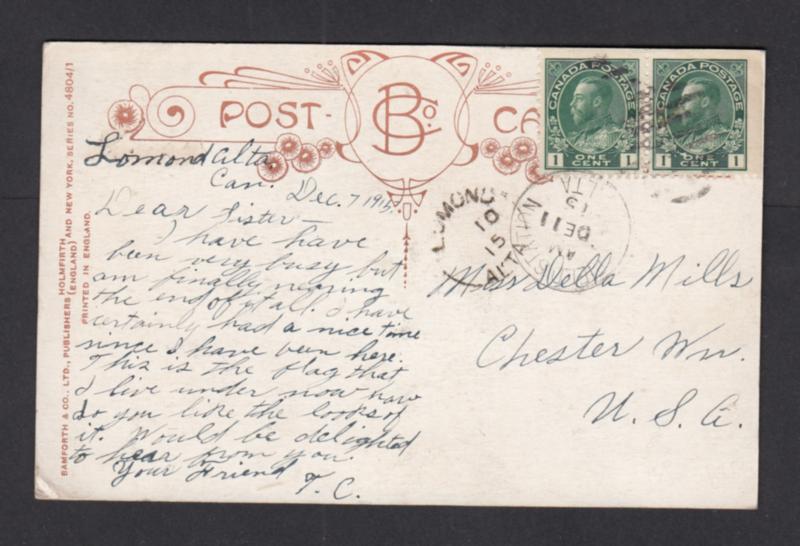 POST- CA
B Co.
CANADA POSTAGE
1 ONE CENT 1
CANADA POSTAGE
1 ONE CENT 1
Lomond Alta
Can. Dec. 7 1915.
Dear Sister –
I have have
been very busy but
am finally nearing
the end of it all. I have
certainly had a nice time
since I have been here.
This is the flag that
I live under now how
do you like the looks of
it. Would be delighted
to hear from you.
Your Friend
T. C.
LOMOND
10
15
ALTA
AM
DE 11
15
ALTA
Miss Della Mills
Chester Wn.
U. S. A.
BAMFORTH & CO., LTD., PUBLISHERS HOLMFIRTH (ENGLAND) AND NEW YORK, SERIES NO. 4804/1
PRINTED IN ENGLAND.